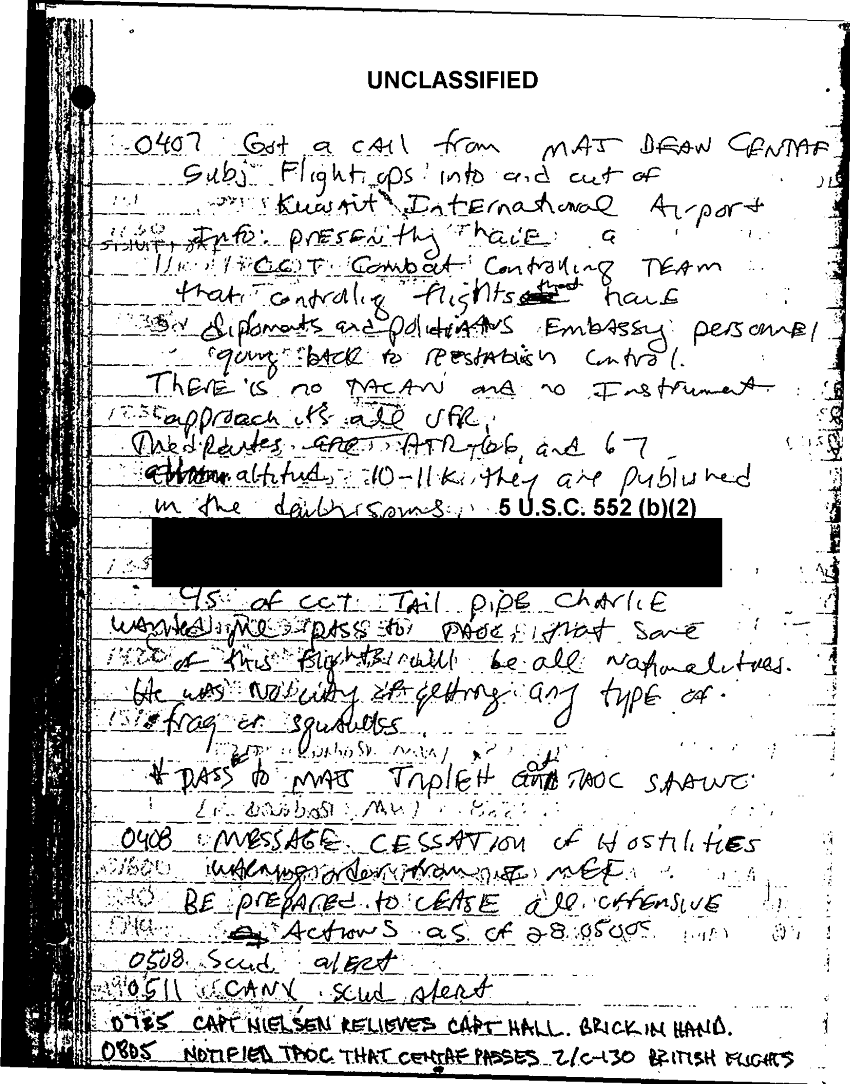 UNCLASSIFIED
0407 Got a CALL from MAJ DEAN CENTAF
Subj Flight ops into and out of
Kuwait International Airport
Info: presently have a
CCT Combat Controlling TEAM
that controlig flights have
diplomats and politicians Embassy personnel
going back to reestablish control.
THERE is no TACAN and no Instrument
approach it's all VFR,
The Routes are ATR 66, and 67
altitud 10-11K they are published
in the
5 U.S.C. 552 (b)(2)
C/S of CCT TAil pipE CharliE
wanted me PASS to TAOC, that some
of this flights will be all Nationalities.
He was Not getting any type of
frag or squawks
* PASS to MAJ Triplett at TAOC SAAWC
0408 MESSAGE CESSATION of HostilitiES
warning order from I MEF
BE prepared to CEASE all offensive
Actions as of 280500
0508 Scud alert
0511 CANX scud alert
0725 CAPT NIELSEN RELIEVES CAPT HALL. BRICK IN HAND.
0805 NOTIFIED TAOC THAT CENTAF PASSES 2/C-130 BRITISH FLIGHTS